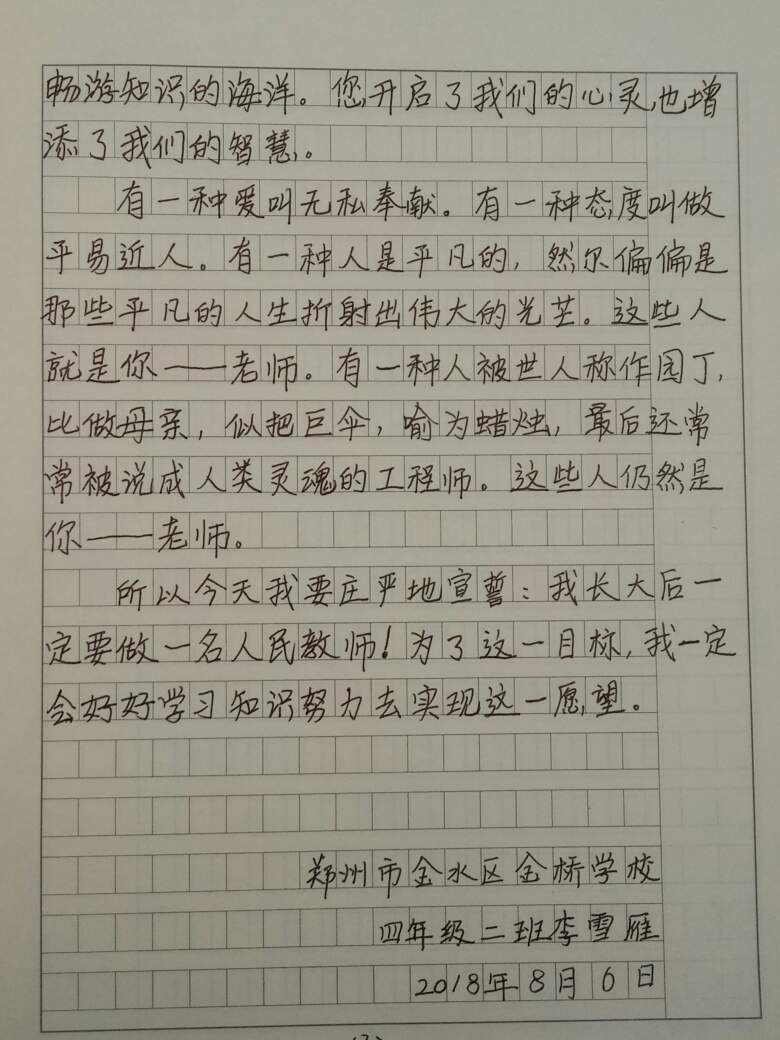 畅游知识的海洋。您开启了我们的心灵,也增
添了我们的智慧。
有一种爱叫无私奉献。有一种态度叫做
平易近人。有一种人是平凡的,然尔偏偏是
那些平凡的人生折射出伟大的光芒。这些人
就是你——老师。有一种人被世人称作园丁,
比做母亲,似把巨伞,喻为蜡烛,最后还常
常被说成人类灵魂的工程师。这些人仍然是
你——老师。
所以今天我要庄严地宣誓:我长大后一
定要做一名人民教师!为了这一目标,我一定
会好好学习知识努力去实现这一愿望。
郑州市金水区金桥学校
四年级二班李雪雁
2018年8月6日